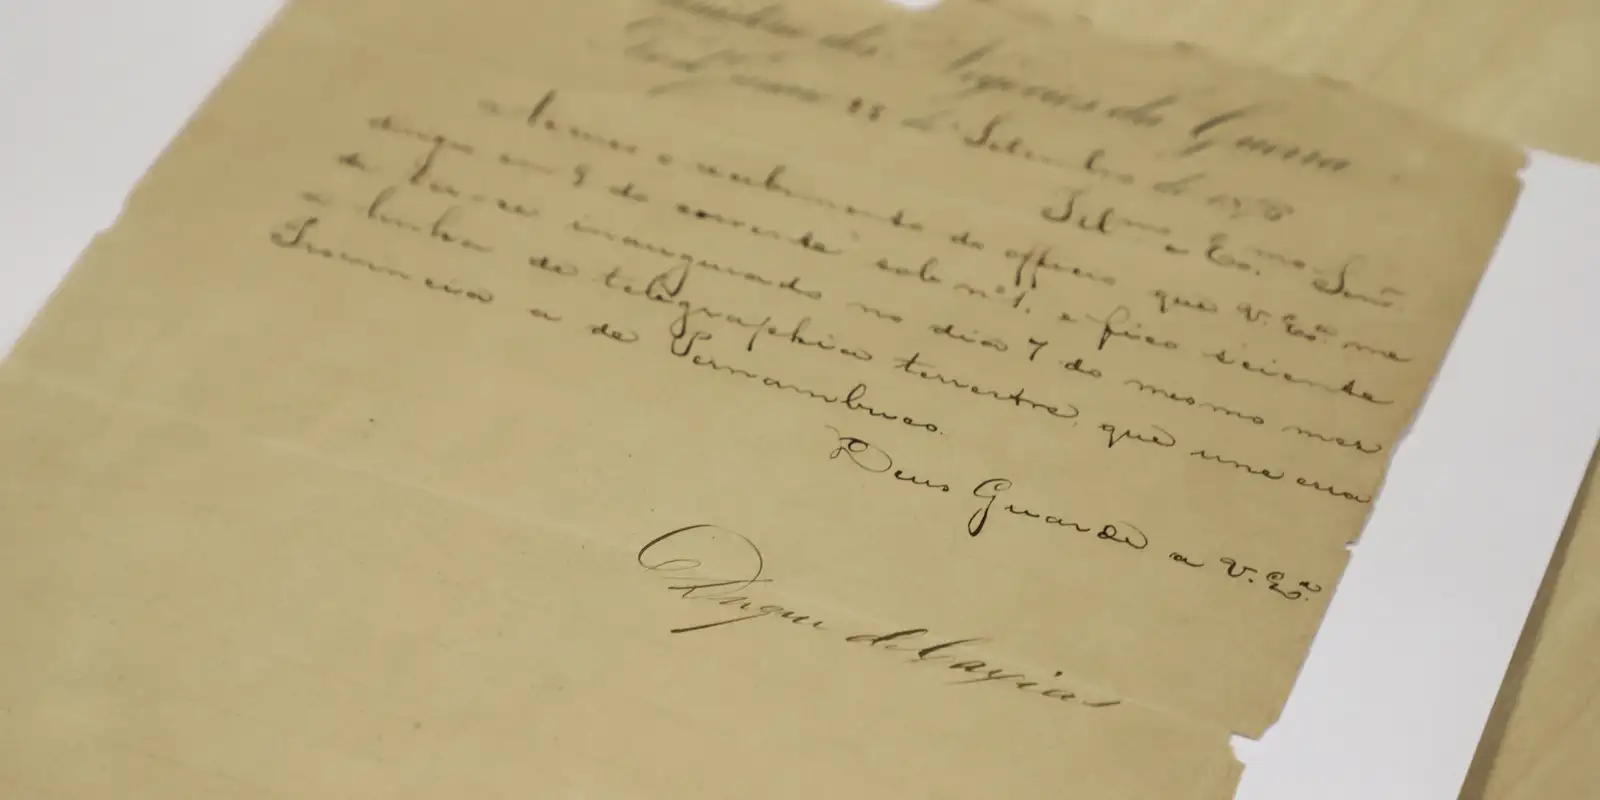 Negocios da Guerra
de Setembro de 187
Ill.mo e Ex.mo Señr.
o recebimento do officio que V. Ex.a me
em 9 do corrente sob nº 1, e fico sciente
de ter-se inaugurado no dia 7 do mesmo mez
a linha de telegraphia terrestre, que une essa
Provincia a de Pernambuco.
Deus Guarde a V. Ex.a
Duque de Caxias